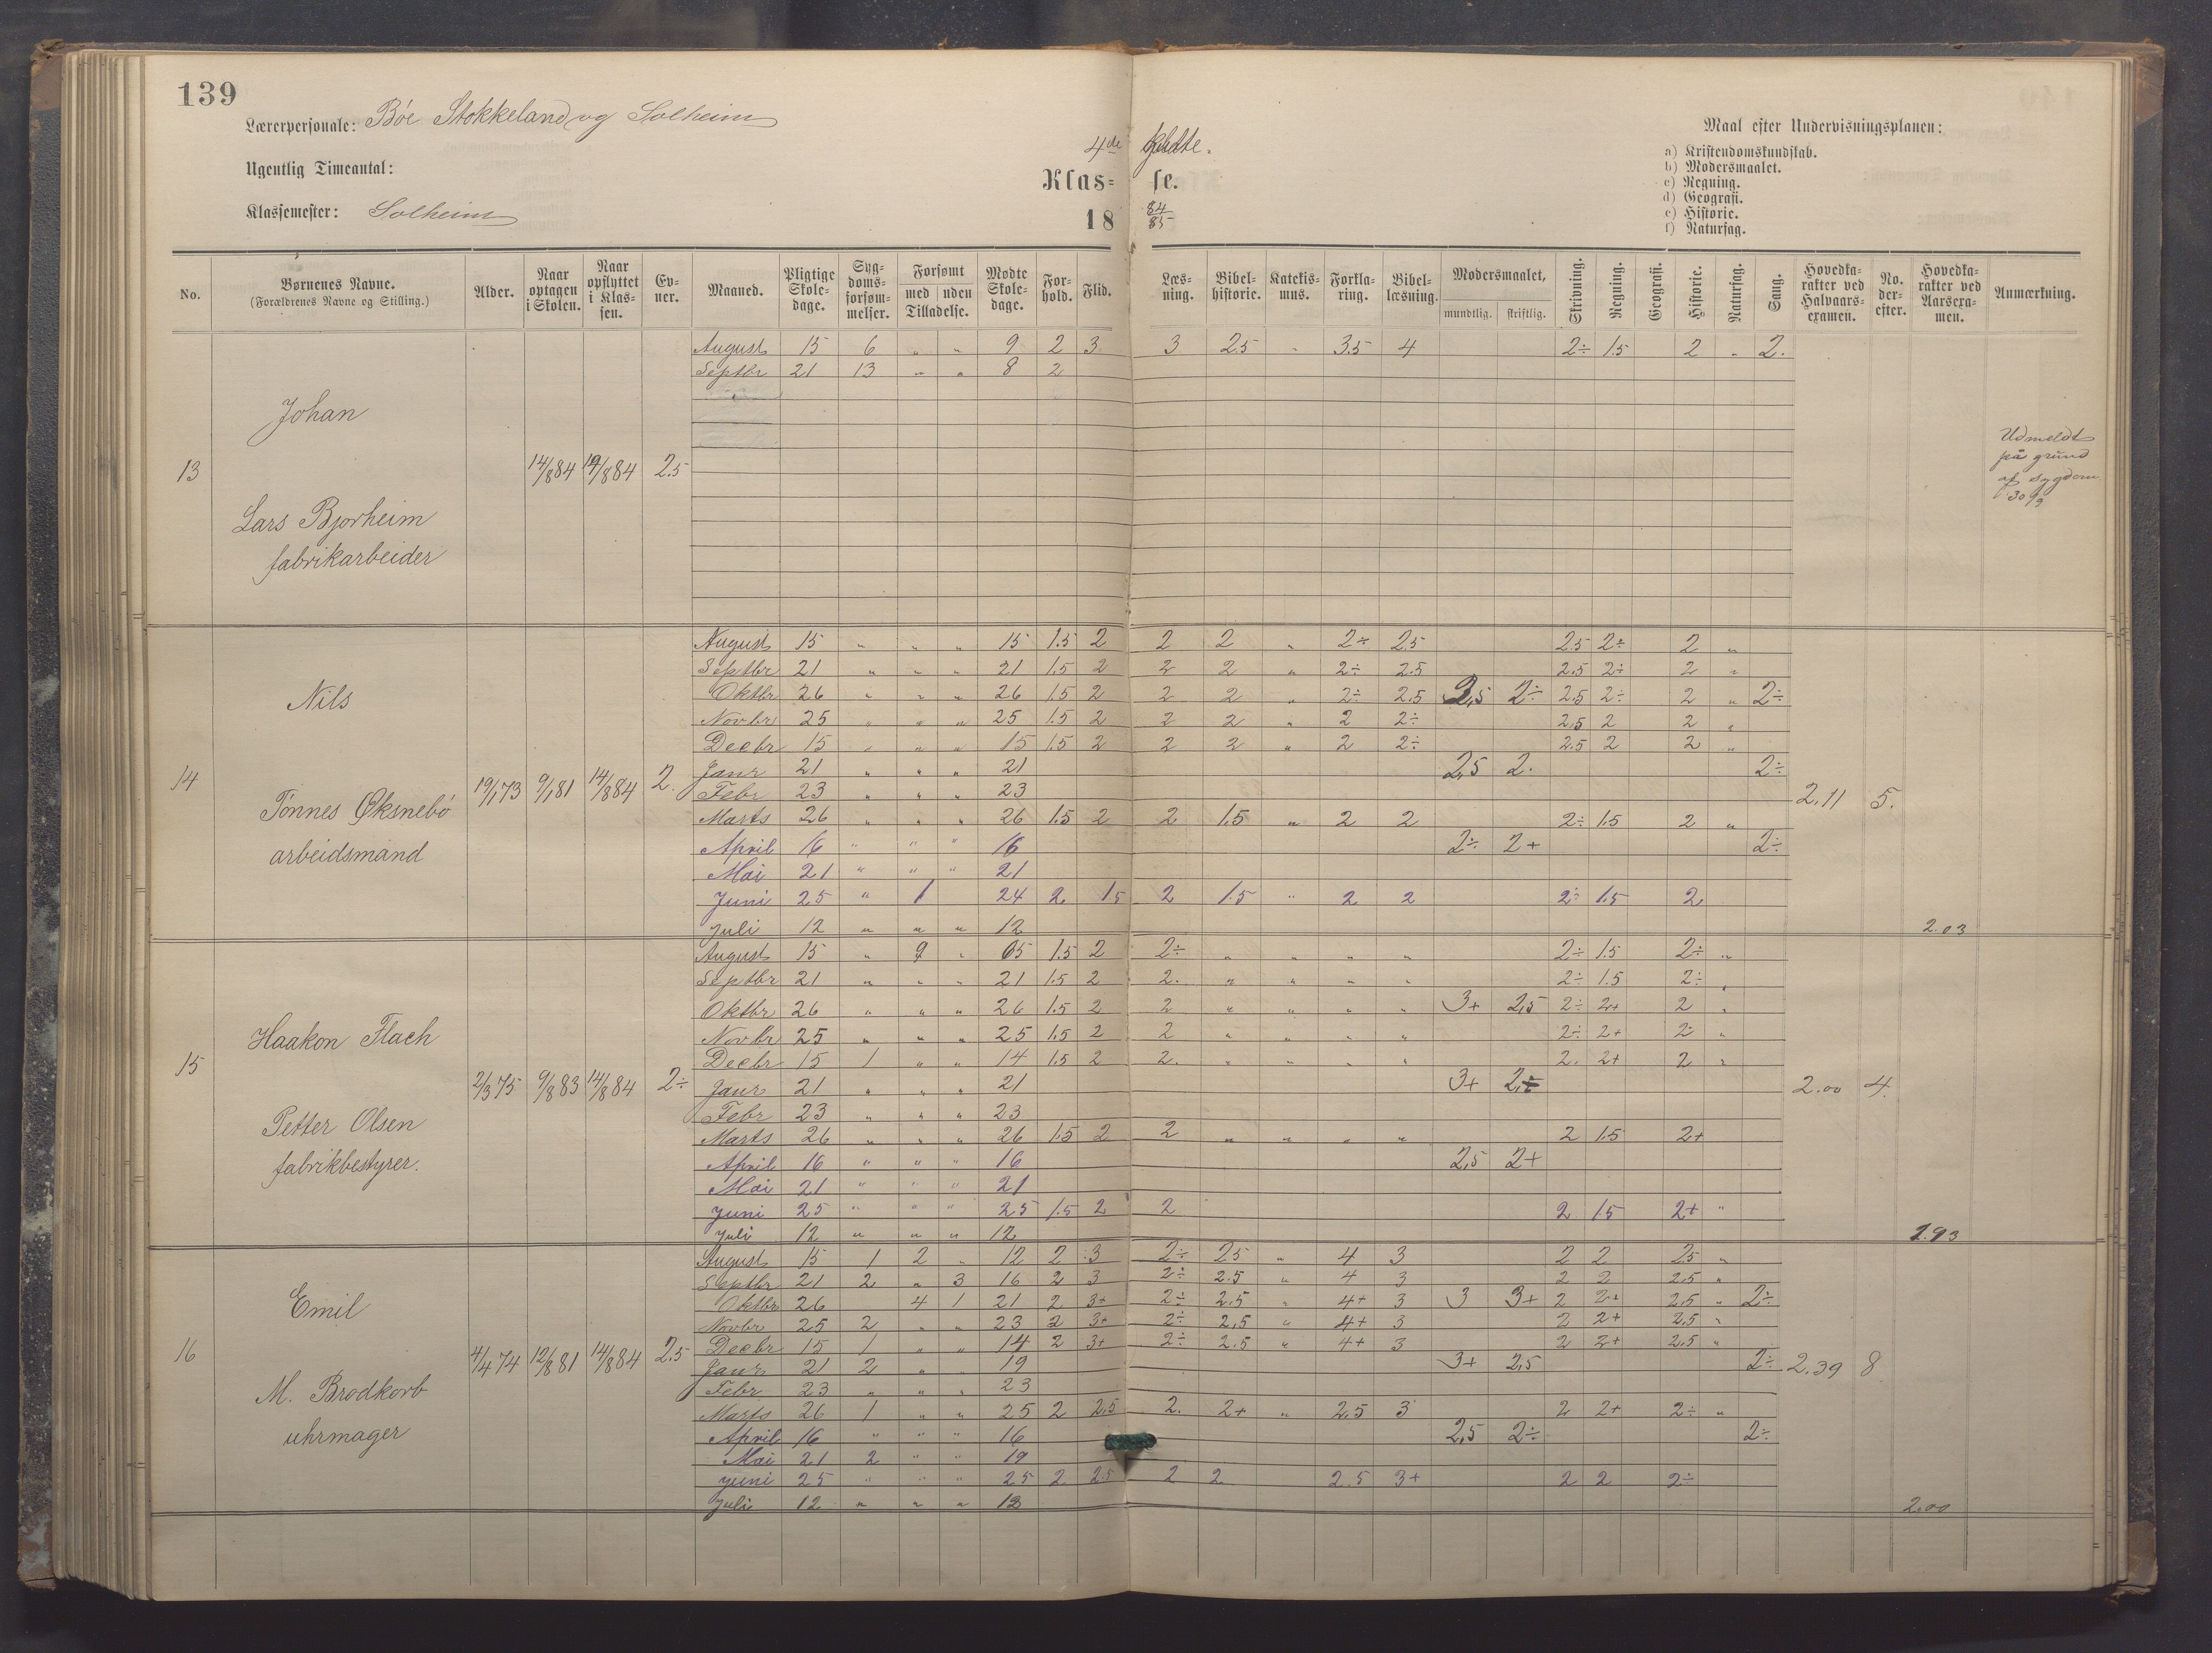 139
Lærerpersonale: Bóe Stokkeland og Solheim
Ugentlig Timeantal:
Klassemester: Solheim
4de
Klas= se.
18 84/85
Maal efter Undervisningsplanen:
a) Kristendomskundskab.
b) Modersmaalet.
c) Regning.
d) Geografi.
e) Historie.
f) Naturfag.
No. | Børnenes Navne. (Forældrenes Navne og Stilling.) | Alder. | Naar optagen i Skolen. | Naar opflyttet i Klas=sen. | Ev=ner. | Maaned. | Pligtige Skole=dage. | Syg=doms=forsøm=melser. | Forsømt med uden Tilladelse. | Mødte Skole=dage. | For=hold. | Flid. | Læs=ning. | Bibel=historie. | Katekis=mus. | Forkla=ring. | Bibel=læsning. | Modersmaalet, mundtlig. skriftlig. | Skrivning. | Regning. | Geografi. | Historie. | Naturfag. | Sang. | Hovedka=rakter ved Halvaars=examen. | No. der=efter. | Hovedka=rakter ved Aarsexa=men. | Anmærkning.
13 Johan
Lars Bjorheim
fabrikarbeider
14/8 84 14/8 84 2.5
August 15 6 " " 9 2 3 3 2.5 " 3.5 4 2÷ 1.5 2 " 2.
Septbr 21 13 " " 8 2
Udmeldt
på grund
af sygdom
30/9
14 Nils
Tönnes Øksnebö
arbeidsmand
19/1 73 9/1 81 14/8 84 2.
August 15 " " " 15 1.5 2 2 2 " 2÷ 2.5 2.5 2÷ 2 "
Septbr 21 " " " 21 1.5 2 2 2 " 2÷ 2.5 2.5 2÷ 2 "
Oktbr 26 " " " 26 1.5 2 2 2 " 2÷ 2.5 2,5 2÷ 2.5 2÷ 2 " 2÷
Novbr 25 " " " 25 1.5 2 2 2 " 2 2÷ 2,5 2 2 "
Decbr 15 " " " 15 1.5 2 2 2 " 2 2÷ 2.5 2 2 "
Janr 21 " " " 21 2,5 2. 2÷
Febr 23 " " " 23
Marts 26 " " " 26 1.5 2 2 1.5 " 2 2 2÷ 1.5 2 "
April 16 " " " 16 2÷ 2+ 2÷
Mai 21 " " " 21
Juni 25 " 1 24 2 1.5 2 1.5 " 2 2 2÷ 1.5 2
Juli 12 " " " 12
2.11 5. 2.03
15 Haakon Flach
Petter Olsen
fabrikbestyrer.
2/3 75 9/8 83 14/8 84 2÷
August 15 " 9 " 65 1.5 2 2÷ " " " " 2÷ 1.5 2÷ "
Septbr 21 " " " 21 1.5 2 2. " " " " 2÷ 1.5 2÷ "
Oktbr 26 " " " 26 1.5 2 2 " " " " 3+ 2,5 2÷ 2+ 2 "
Novbr 25 " " " 25 1.5 2 2 " " " " 2÷ 2+ 2 "
Decbr 15 1 " " 14 1.5 2 2. " " " " 2. 2+ 2 "
Janr 21 " " " 21 3+ 2÷
Febr 23 " " " 23
Marts 26 " " " 26 1.5 2 2 " " " " 2 1.5 2+
April 16 " " " 16 2,5 2+
Mai 21 " " " 21
Juni 25 " " " 25 1.5 2 2 2 1.5 2+ "
Juli 12 " " " 12
2.00 4. 1.93
16 Emil
M. Brodkorb
uhrmager
4/4 74 12/8 81 14/8 84 2.5
August 15 1 2 " 12 2 3 2÷ 2.5 " 4 3 2 2 2.5 "
Septbr 21 2 " 3 16 2 3 2÷ 2.5 " 4 3 2 2 2.5 "
Oktbr 26 4 1 21 2 3+ 2÷ 2.5 " 4+ 3 3 3+ 2 2+ 2.5 " 2÷
Novbr 25 2 " " 23 2 3+ 2÷ 2,5 " 4+ 3 2 2+ 2.5 "
Decbr 15 1 " " 14 2 3+ 2÷ 2.5 " 4+ 3 2 2+ 2.5 "
Janr 21 2 " " 19 3+ 2,5 2÷
Febr 23 " " " 23
Marts 26 1 " " 25 2 2.5 2. 2+ " 2.5 3 2 2+ 2÷ "
April 16 " " " 16 2,5 2÷ 2÷
Mai 21 2 " " 19
Juni 25 " " " 25 2 2.5 2 2 2.5 3+ 2 2 2÷
Juli 12 " " " 12
2.39 8 2.00